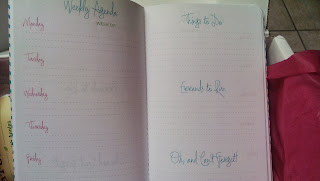 Weekly Agenda
Monday
Tuesday
Wednesday
Thursday
Friday
Things to Do
Errands to Run
Oh, and Don't Forget!